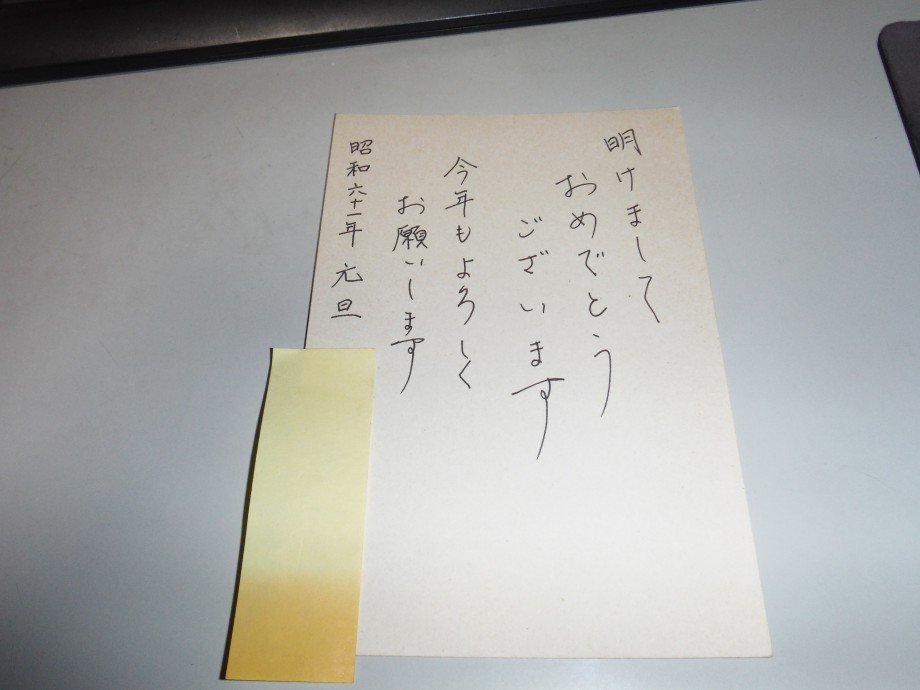 明けまして
おめでとう
ございます
今年もよろしく
お願いします
昭和六十一年 元旦